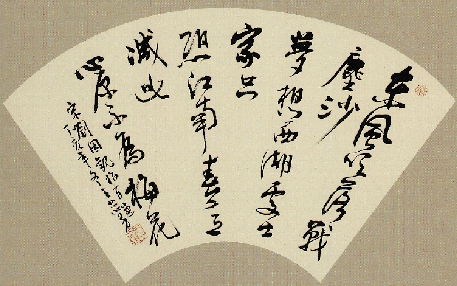 東風吹落戰
塵沙
夢想西湖處士
家只
恐江南春意
減此
心原不為梅花
宋劉因觀梅有感